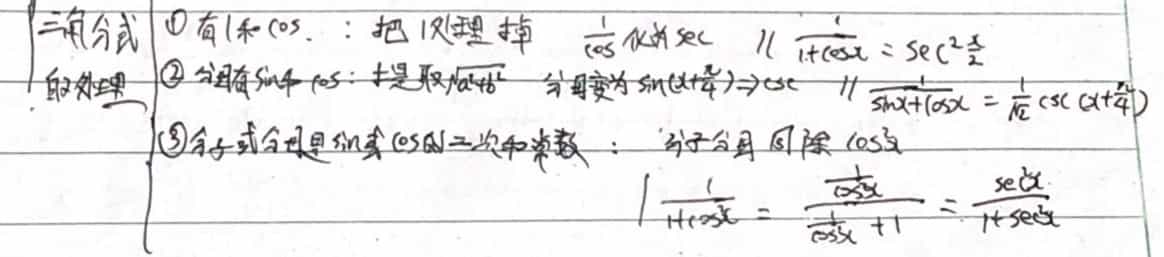 三角分式的处理
① 有1和cos. : 把1处理掉 1/cos 化为sec // 1/(1+cosx) = sec² x/2
② 分母有sin和cos: 提取√(a²+b²) 分母变为sin(x+π/4)⇒csc // 1/(sinx+cosx) = 1/√2 csc(x+π/4)
③ 分子或分母是sin或cos的二次和常数 : 分子分母同除cos²x
1/(1+cos²x) = (1/cos²x)/(1/cos²x + 1) = sec²x/(1+sec²x)